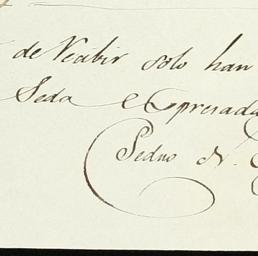 de Recibir solo han
Seda expresada
Pedro N.